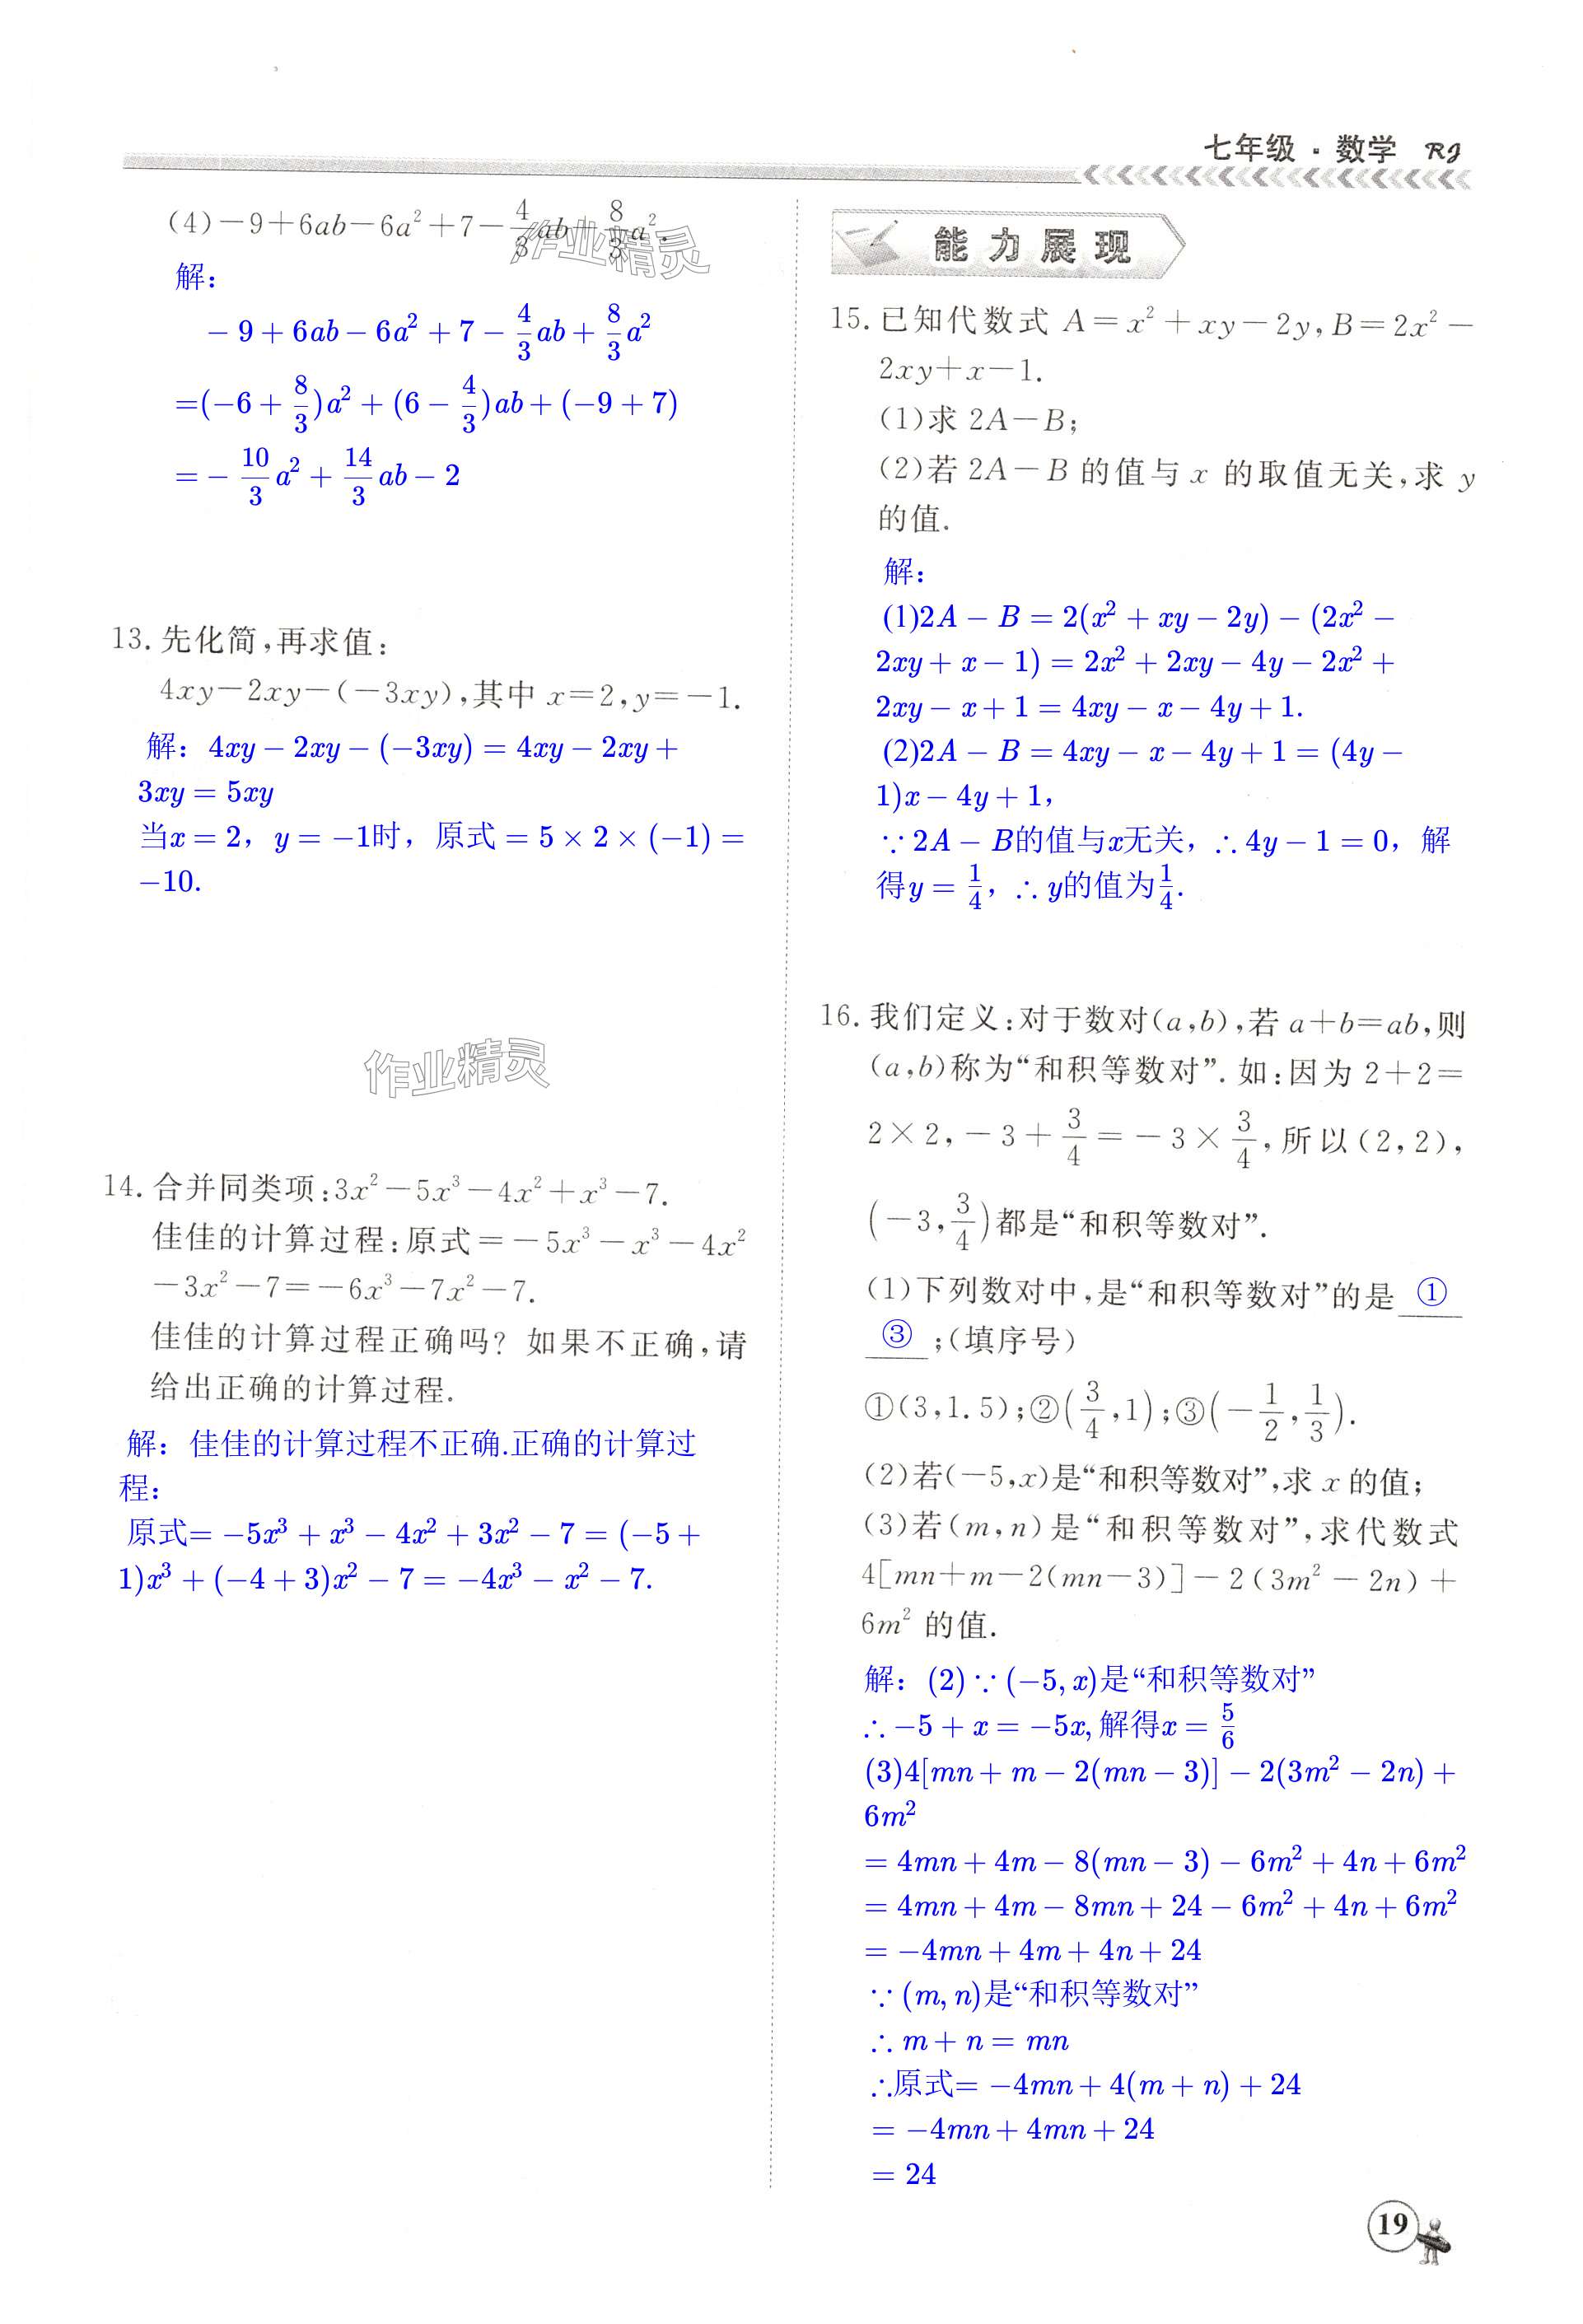 七年级·数学 RJ
(4)－9＋6ab－6a²＋7－4/3ab＋8/3a².
作业精灵
解：
－9＋6ab－6a²＋7－4/3ab＋8/3a²
=(−6＋8/3)a²＋(6－4/3)ab＋(−9＋7)
=－10/3a²＋14/3ab－2
13. 先化简,再求值:
4xy－2xy－(－3xy),其中 x=2,y=－1.
解：4xy－2xy－(−3xy)=4xy－2xy＋
3xy=5xy
当x=2，y=−1时，原式=5×2×(−1)=
−10.
作业精灵
14. 合并同类项:3x²－5x³－4x²＋x³－7.
佳佳的计算过程:原式=－5x³－x³－4x²
－3x²－7=－6x³－7x²－7.
佳佳的计算过程正确吗? 如果不正确,请
给出正确的计算过程.
解：佳佳的计算过程不正确.正确的计算过
程：
原式=−5x³＋x³－4x²＋3x²－7=(−5＋
1)x³＋(−4＋3)x²－7=−4x³－x²－7.
能力展现
15. 已知代数式 A=x²＋xy－2y,B=2x²－
2xy＋x－1.
(1)求 2A－B;
(2)若 2A－B 的值与 x 的取值无关,求 y
的值.
解：
(1)2A－B=2(x²＋xy－2y)－(2x²－
2xy＋x－1)=2x²＋2xy－4y－2x²＋
2xy－x＋1=4xy－x－4y＋1.
(2)2A－B=4xy－x－4y＋1=(4y－
1)x－4y＋1，
∵2A－B的值与x无关，∴4y－1=0，解
得y=1/4，∴y的值为1/4.
16. 我们定义:对于数对(a,b),若 a＋b=ab,则
(a,b)称为“和积等数对”. 如:因为 2＋2=
2×2,－3＋3/4=－3×3/4,所以(2,2),
(－3,3/4)都是“和积等数对”.
(1)下列数对中,是“和积等数对”的是 ①
③ ;(填序号)
①(3,1.5);②(3/4,1);③(－1/2,1/3).
(2)若(－5,x)是“和积等数对”,求 x 的值;
(3)若(m,n)是“和积等数对”,求代数式
4[mn＋m－2(mn－3)]－2(3m²－2n)＋
6m² 的值.
解：(2)∵(−5,x)是“和积等数对”
∴−5＋x=−5x,解得x=5/6
(3)4[mn＋m－2(mn－3)]－2(3m²－2n)＋
6m²
=4mn＋4m－8(mn－3)－6m²＋4n＋6m²
=4mn＋4m－8mn＋24－6m²＋4n＋6m²
=−4mn＋4m＋4n＋24
∵(m,n)是“和积等数对”
∴m＋n=mn
∴原式=−4mn＋4(m＋n)＋24
=−4mn＋4mn＋24
=24
19